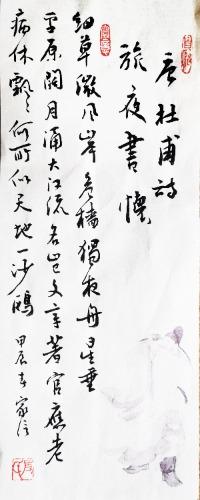 唐杜甫詩
旅夜書懷
細草微風岸危檣獨夜舟星垂
平原闊月涌大江流名岂文章著官應老
病休飄々何所似天地一沙鷗 甲辰春家信